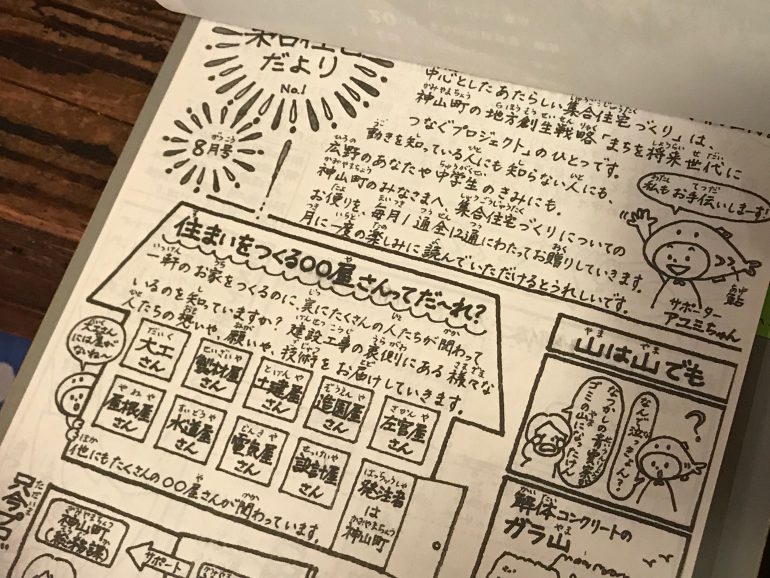 だより
No.1
8月号
中心としたあたらしい集合住宅づくり」は、
神山町の地方創生戦略「まちを将来世代に
つなぐプロジェクト」のひとつです。
動きを知っている人にも知らない人にも、
広野のあなたや中学生のきみにも。
神山町のみなさまへ、集合住宅づくりについての
お便りを、毎月1通合計12通にわたってお贈りしていきます。
月に一度の楽しみに読んでいただけるとうれしいです。
私もお手伝いしまーす!
サポーター
アユミちゃん
住まいをつくる〇〇屋さんってだ〜れ?
一軒のお家をつくるのに、実にたくさんの人たちが関わって
いるのを知っていますか?建設工事の裏側にある様々な
人たちの思いや願いや、技術をお届けしていきます。
大工さん
には屋がないね〜
大工さん
製材屋さん
土建屋さん
造園屋さん
左官屋さん
屋根屋さん
水道屋さん
電気屋さん
設計屋さん
発注者は神山町
他にもたくさんの〇〇屋さんが関わっています。
山は山でも
?
なんで泣っきょん?
ゴミの山になったけん
解体コンクリートの
ガラ山
神山町
サポート